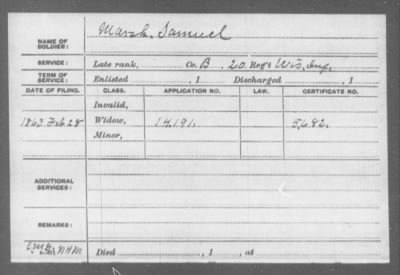 NAME OF SOLDIER: Marsh, Samuel
SERVICE: Late rank, Co. B, 20 Reg't Wis. Inf.
TERM OF SERVICE: Enlisted , 1 Discharged , 1
DATE OF FILING. CLASS. APPLICATION NO. LAW. CERTIFICATE NO.
Invalid,
1863 Feb 28 Widow, 14,191. 5,682.
Minor,
ADDITIONAL SERVICES:
REMARKS:
Died , 1 , at